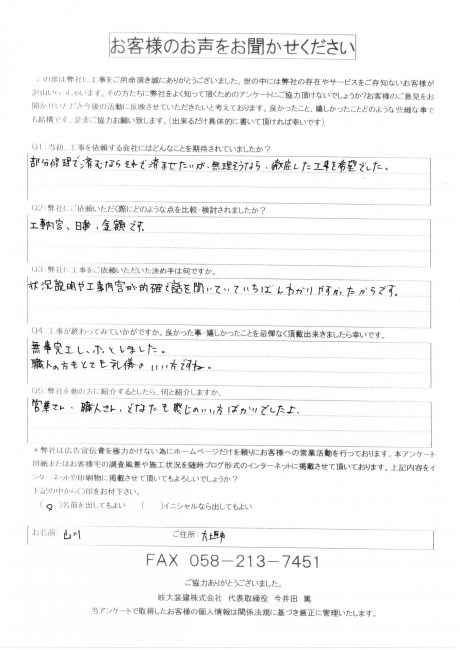 お客様のお声をお聞かせください
の度は弊社に工事をご用命頂き誠にありがとうございました。世の中には弊社の存在やサービスをご存知ないお客様が
沢山いらっしゃいます。その方たちに弊社をよく知って頂くためのアンケートにご協力頂けないでしょうか？お客様のご意見をお
聞かせいただき今後の活動に反映させていただきたいと考えております。良かったこと、嬉しかったことどのような些細な事で
も結構です。是非ご協力お願い致します。（出来るだけ具体的に書いて頂ければ幸いです）
Q1：当初、工事を依頼する会社にはどんなことを期待されていましたか？
部分修理で済むならそれで済ませたいが、無理そうなら、徹底した工事を希望でした。
Q2：弊社にご依頼いただく際にどのような点を比較・検討されましたか？
工事内容、日数、金額です。
Q3：弊社に工事をご依頼いただいた決め手は何ですか。
状況説明や工事内容が的確で話を聞いていていちばんわかりやすかったからです。
Q4：工事が終わってみていかがですか。良かった事・嬉しかったことを忌憚なく頂戴出来きましたら幸いです。
無事完工し、ホッとしました。
職人の方もとても礼儀のいい方ですね。
Q5：弊社を他の方に紹介するとしたら、何と紹介しますか。
営業さん、職人さん、どなたも感じのいい方ばかりでしたよ。
＊弊社は広告宣伝費を極力かけない為にホームページだけを頼りにお客様への営業活動を行っております。本アンケート
用紙またはお客様宅の調査風景や施工状況を随時ブログ形式のインターネットに掲載させて頂いております。上記内容をイ
ンターネットや印刷物に掲載させて頂いてもよろしいでしょうか？
下記の中から〇印をお付下さい。
（○）名前を出してもよい　（　）イニシャルなら出してもよい
お名前：山川　ご住所：
FAX 058－213－7451
ご協力ありがとうございました。
岐大装建株式会社 代表取締役 今井田 篤
当アンケートで取得したお客様の個人情報は関係法規に基づき厳正に管理いたします。